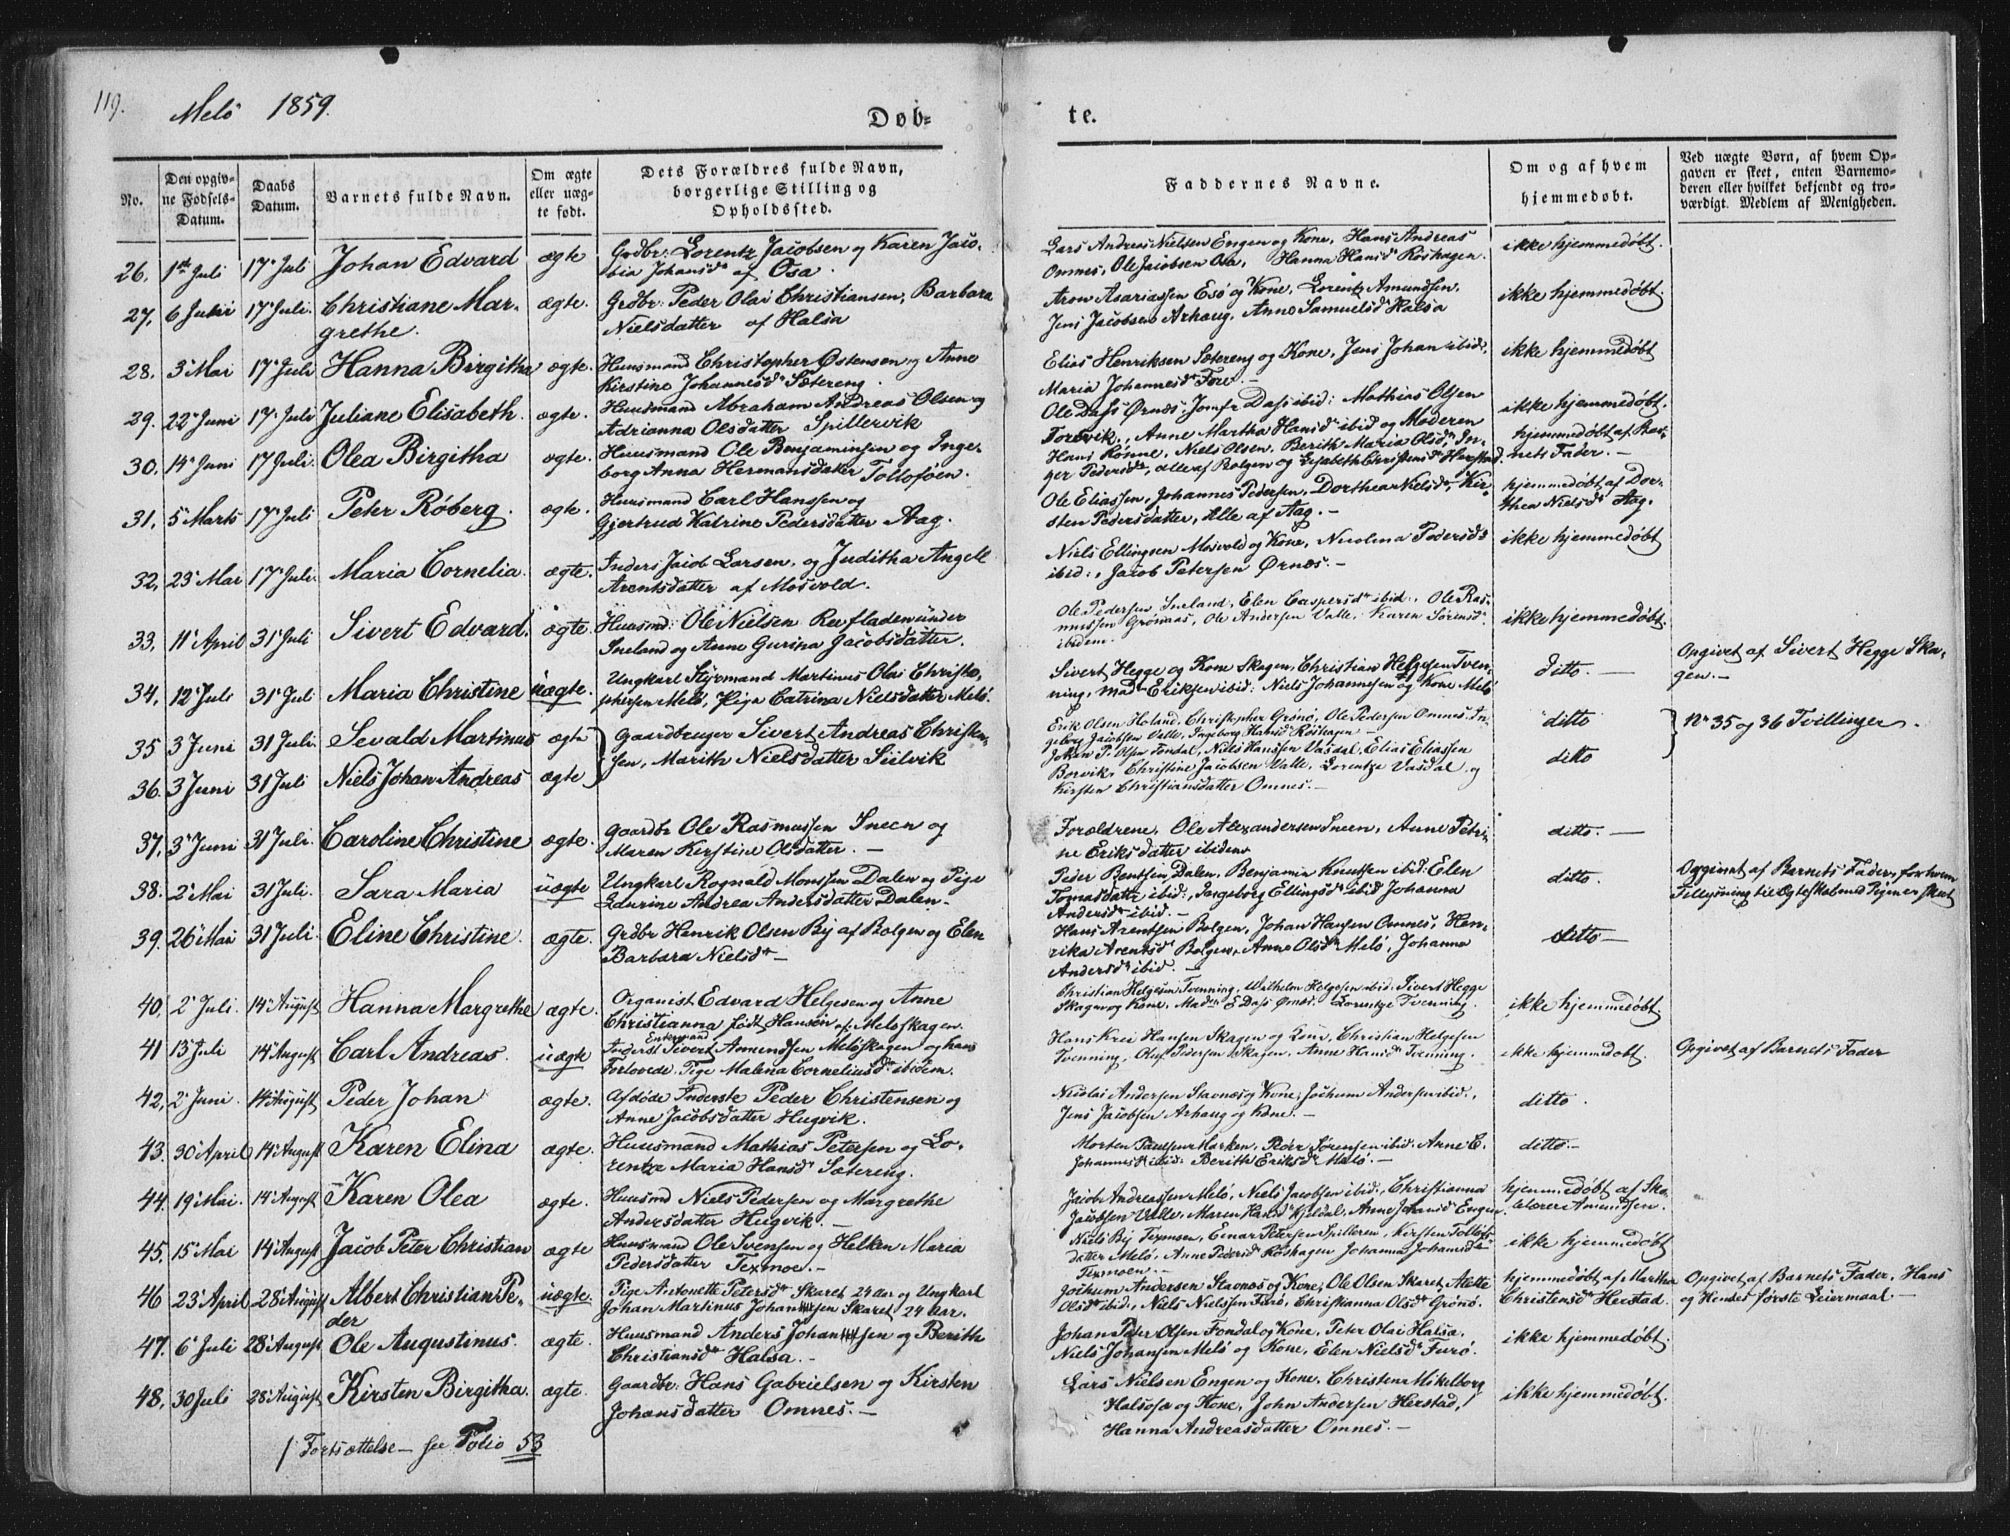 119.
Melö 1859.
Døb=
te.
No.
Den opgiv=
ne Fødsels=
Datum.
Daabs
Datum.
Barnets fulde Navn.
Om ægte
eller uæg=
te født.
Dets Forældres fulde Navn,
borgerlige Stilling og
Opholdssted.
Faddernes Navne.
Om og af hvem
hjemmedøbt.
Ved uægte Børn, af hvem Op=
gaven er skeet, enten Barnemo=
deren eller hvilket bekjendt og tro=
værdigt Medlem af Menigheden.
26. 1ste Juli 17de Juli Johan Edvard ægte Grdbr: Lorentz Jacobsen og Karen Jaco-
bia Johansdr af Osa.
Lars Andreas Nielsen Engen og Kone, Hans Andreas
Omnes, Ole Jacobsen Osa, Hanna Hansdr Röshagen.
ikke hjemmedøbt.
27. 6 Juli 17 Juli. Christiane Mar-
grethe.
ægte. Grdbr: Peder Olai Christiansen, Barbara
Nielsdatter af Halsa
Aron Asariassen Esö og Kone, Lorentz Amundsen,
Jens Jacobsen Arhaug, Anne Samuelsdr Halsa
ikke hjemmedøbt.
28. 3 Mai 17 Juli Hanna Birgitha ægte. Huusmand Christopher Østensen og Anne
Kirstine Johannesdr Sætereng.
Elias Henriksen Sætereng og Kone, Jens Johan ibid,
Maria Johannesdr Fore.-
ikke hjemmedøbt
29. 22 Juni 17 Juli Juliane Elisabeth. ægte. Huusmand Abraham Andreas Olsen og
Adrianna Olsdatter Spillervik
Ole Dass Ørnæs, Jomfr Dass ibid: Mathias Olsen
Foresvik, Anne Martha Hansdr ibid og Moderen
ikke hjemmedøbt.
30. 14 Juni 17 Juli. Olea Birgitha ægte. Huusmand Ole Benjaminsen og Inge-
borg Anna Hermansdatter Tolloföen.
Hans Könne, Niels Olsen, Berith Maria Olsdr, In-
ger Pedersdr, alle af Bolgen og Elisabeth Christensdr Herstad.
hjemmedøbt af Bar-
nets Fader.-
31. 5 Marts 17 Juli Peter Röberg. ægte. Huusmand Carl Hanssen og
Gjertrud Katrine Pedersdatter Aag.
Ole Eliassen, Johannes Pedersen, Dorthea Nielsdr, Kir-
sten Pedersdatter, Alle af Aag.-
hjemmedøbt af Dor-
thea Nielsdr Aag.
32. 23 Mai 17 Juli. Maria Cornelia. ægte. Anders Jacob Larsen, og Juditha Angell
Arentsdatter af Mosvold.
Niels Ellingsen Mosvold og Kone, Nicolina Pedersdr
ibid:, Jacob Petersen Ørnæs.-
ikke hjemmedøbt
33. 11 April 31 Juli Sivert Edvard. ægte. Huusmd: Ole Nielsen Reefladen under
Ineland og Anne Gurina Jacobsdatter.
Ole Pedersen Ineland, Elen Caspersdr ibid., Ole Ras-
mussen Grönnas, Ole Andersen Valle, Karen Sörensdr
ibidem.
ikke hjemmedøbt.
34. 12 Juli 31 Juli Maria Christine uægte. Ungkarl Styrmand Martinus Olai Christo-
phersen Melö, Pige Catrina Nielsdatter Melö.
Sivert Hegge og Kone Skagen, Christian Helgesen Tven-
ning, Mad Eriksen ibid: Niels Johannesen og Kone Melö
ditto.
Opgivet af Sivert Hegge Ska-
gen.-
35 3 Juni 31 Juli. Sevald Martinus ægte Gaardbruger Sivert Andreas Christen-
sen, Marith Nielsdatter Siilvik
Erik Olsen Holand, Christopher Grönö, Ole Pedersen Omnes, In-
geborg Jacobsen Valle, Ingeborg Hansdr Röshagen
ditto
No 35 og 36 Tvillinger.
36. 3 Juni 31 Juli Niels Johan Andreas ægte
Johan P. Olsen Fondal, Niels Hanssen Vasdal, Elias Eliassen
Borvik, Christine Jacobsen Valle, Lorentze Vasdal og
Kirsten Christiansdatter Omnes.-
ditto
37. 3 Juni 31 Juli. Caroline Christine ægte. Gaardbr Ole Rasmussen Sneen og
Maren Kirstine Olsdatter.-
Forældrene, Ole Alexandersen Sneen, Anne Petri-
ne Eriksdatter ibidem
ditto.-
38. 2 Mai 31 Juli. Sara Maria uægte Ungkarl Rognald Monssen Dalen og Pige
Laurine Andrea Andersdatter Dalen.
Peder Bentsen Dalen, Benjamin Knutsen ibid: Elen
Tomasdatr ibid:, Ingeborg Ellingsdr ibid Johanna
Andersdr ibid.-
ditto.
Opgivet af Barnets Fader, for hvem
Tillysning til Ægteskab med Pigen er skeet
39. 26 Mai 31 Juli. Eline Christine. ægte. Grdbr Henrik Olsen Bij af Bolgen og Elen
Barbara Nielsdr-
Hans Arentsen Bolgen, Johan Hansen Omnes, Hen-
rika Arentsdr Bolgen, Anne Olsdr Melö, Johanna
Andersdr ibid.-
ditto-
40. 2 Juli. 14 August Hanna Margrethe ægte. Organist Edvard Helgesen og Anne
Christianna født Hansen af Meløskagen.
Christian Helgesen Tvenning, Wilhelm Helgesen ibid: Sivert Hegge
Skagen og Kone, Maden E Dass Ørnæs. Lorentze Tvenning.
ikke hjemmedøbt.
41 13 Juli 14 August Carl Andreas. uægte
Enkemand
Inderst Sivert Amundsen Meløskagen og hans
Forlovede, Pige Malena Corneliusdr ibidem.
Hans Krei Hansen Skagen og Kone, Christian Helgesen
Tvenning, Oluf Pedersen Skagen, Anne Hansdr Tvenning.
ikke hjemmedøbt.
Opgivet af Barnets Fader
42. 2 Juni. 14 August Peder Johan ægte. Afdöde Inderste Peder Christensen og
Anne Jacobsdatter Hugvik.
Nicolai Andersen Stavnæs og Kone, Jochum Andersen ibid.,
Jens Jacobsen Arhaug og Kone.-
ditto.
43. 30 April 14 August Karen Elina ægte. Huusmand Mathias Petersen og Lo-
rentza Maria Hansdr Sætereng.
Morten Paulsen Marken, Peder Sörensen ibid: Anne E.
Johannesdr ibid: Berith Eriksdr Melö.-
ditto.-
44. 19 Mai. 14 August Karen Olea ægte. Huusmd Niels Pedersen og Margrethe
Andersdatter Hugvik.-
Jacob Andreassen Melö, Niels Jacobsen ibid:, Christianna
Jacobsen Valle, Maren Hansdr Kjeldal, Anne Johansdr Engen.
hjemmedøbt af Sko-
lelærer Amundsen.
45. 15 Mai 14 August Jacob Peter Christian ægte Huusmand Ole Svensen og Helken Maria
Pedersdatter Texmoe.-
Niels Bij Texmoen, Einar Petersen Spilderen, Kirsten Tollefs-
datter Melö, Anne Pedersdr Röshagen Johanna Johansdr
Texmoen.-
ikke hjemmedøbt
46 23 April 28 August Albert Christian Pe-
der
uægte. Pige Antonette Petersdr Skaret 21 aar og Ungkarl
Johan Martinus Johansen Skaret 24 aar.
Jochum Andersen Stavnæs og Kone, Ole Olsen Skaret, Alette
Olsdr ibid:, Niels Nielsen Furö, Christianna Olsdr Grönö.
hjemmedøbt af Martha
Christensdr Herstad.
Opgivet af Barnets Fader, Hans
og Hendes første Leiermaal.-
47. 6 Juli 28 August Ole Augustinus. ægte. Huusmand Anders Johansen og Berith
Christiansdr Halsa.-
Johan Peter Olsen Fondal og Kone, Peter Olai Halsa,
Niels Johansen Melö og Kone, Elen Nielsdr Furö.
ikke hjemmedøbt.
48. 30 Juli 28 August Kirsten Birgitha. ægte. Gaardbr: Hans Gabrielsen og Kirsten
Johansdatter Omnes.-
Lars Nielsen Engen og Kone, Christen Mikelborg
Halsosa og Kone, John Andersen Herstad,
Hanna Andreasdatter Omnes.-
ikke hjemmedøbt.
/ Fortsættelse - see Folio 53